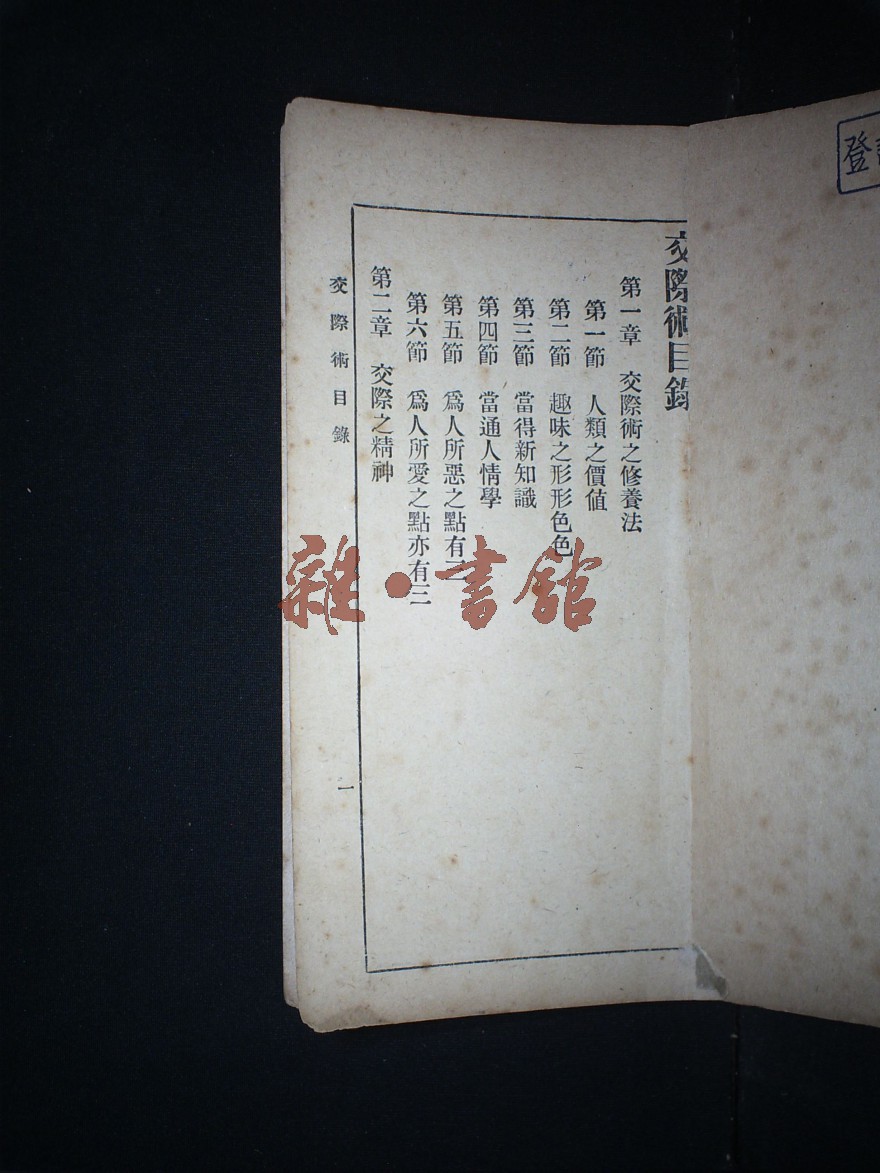 登
交際術目錄
第一章　交際術之修養法
第一節　人類之價値
第二節　趣味之形形色色
第三節　當得新知識
第四節　當通人情學
第五節　爲人所惡之點有
第六節　爲人所愛之點亦有三
第二章　交際之精神
交際術目錄
一
雜·書館